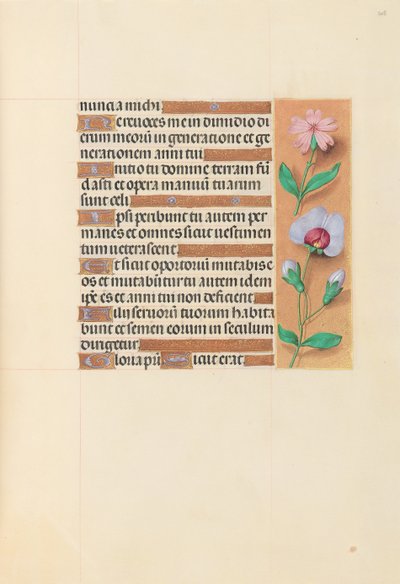 nuncia michi
Ne revoces me in dimidio di
erum meorū in generatione et ge
nerationem anni tui
Initio tu domine terram fū
dasti et opera manuū tuarum
sunt celi
Ipsi peribunt tu autem per
manes et omnes sicut vestimen
tum veterascent
Et sicut oportoriū mutabis e
os et mutabūtur tu autem idem
ip̄e es et anni tui non deficient
Filii servorū tuorum habita
bunt et semen eorum in seculum
dirigetur
Gloria pr̄i Sicut erat